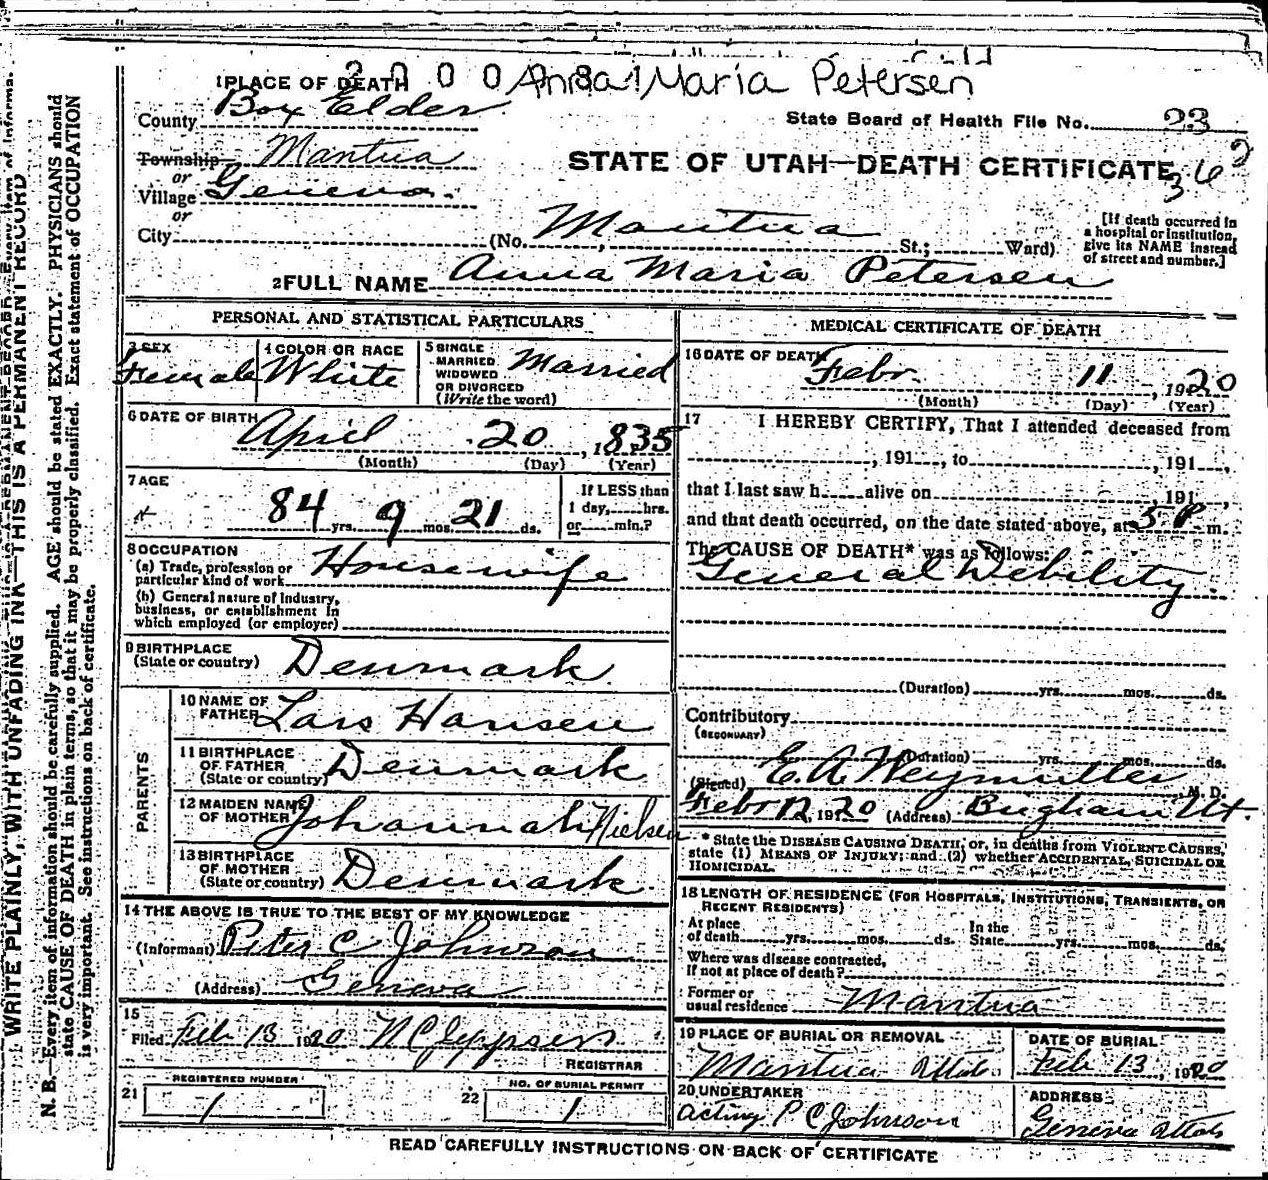 1 PLACE OF DEATH Anna Maria Petersen
County Box Elder
State Board of Health File No. 23
Township Mantua
STATE OF UTAH—DEATH CERTIFICATE
362
or
Village Geneva
or
City (No. Mantua St.; Ward)
[If death occurred in
a hospital or institution,
give its NAME instead
of street and number.]
2 FULL NAME Anna Maria Petersen
PERSONAL AND STATISTICAL PARTICULARS
3 SEX
Female
4 COLOR OR RACE
White
5 SINGLE
MARRIED
WIDOWED
OR DIVORCED
(Write the word)
Married
6 DATE OF BIRTH
April 20, 1835
(Month) (Day) (Year)
7 AGE
84 yrs. 9 mos. 21 ds.
If LESS than
1 day, hrs.
or min.?
8 OCCUPATION
(a) Trade, profession or
particular kind of work Housewife
(b) General nature of Industry,
business, or establishment in
which employed (or employer)
9 BIRTHPLACE
(State or country) Denmark
PARENTS
10 NAME OF
FATHER Lars Hansen
11 BIRTHPLACE
OF FATHER
(State or country) Denmark
12 MAIDEN NAME
OF MOTHER Johannah Nielsen
13 BIRTHPLACE
OF MOTHER
(State or country) Denmark
14 THE ABOVE IS TRUE TO THE BEST OF MY KNOWLEDGE
(Informant) Peter C Johnson
(Address) Geneva
15
Filed Feb 13 1920 N C Jeppsen
REGISTRAR
21 REGISTERED NUMBER
1
22 NO. OF BURIAL PERMIT
1
MEDICAL CERTIFICATE OF DEATH
16 DATE OF DEATH
Febr. 11, 1920
(Month) (Day) (Year)
17 I HEREBY CERTIFY, That I attended deceased from
, 191 , to , 191 ,
that I last saw h alive on , 191 ,
and that death occurred, on the date stated above, at 5 P m.
The CAUSE OF DEATH* was as follows:
General Debility
(Duration) yrs. mos. ds.
Contributory
(SECONDARY)
(Duration) yrs. mos. ds.
(Signed) E. A. Weymuller M. D.
Febr 12, 1920 (Address) Brigham Ut.
* State the DISEASE CAUSING DEATH, or, in deaths from VIOLENT CAUSES,
state (1) MEANS OF INJURY; and (2) whether ACCIDENTAL, SUICIDAL OR
HOMICIDAL.
18 LENGTH OF RESIDENCE (FOR HOSPITALS, INSTITUTIONS, TRANSIENTS, OR
RECENT RESIDENTS)
At place
of death yrs. mos. ds.
In the
State yrs. mos. ds.
Where was disease contracted,
If not at place of death?
Former or
usual residence Mantua
19 PLACE OF BURIAL OR REMOVAL
Mantua Utah
DATE OF BURIAL
Feb 13, 1920
20 UNDERTAKER
acting P C Johnson
ADDRESS
Geneva Utah
READ CAREFULLY INSTRUCTIONS ON BACK OF CERTIFICATE
WRITE PLAINLY, WITH UNFADING INK—THIS IS A PERMANENT RECORD
N. B.—Every item of information should be carefully supplied. AGE should be stated EXACTLY. PHYSICIANS should
state CAUSE OF DEATH in plain terms, so that it may be properly classified. Exact statement of OCCUPATION
is very important. See instructions on back of certificate.